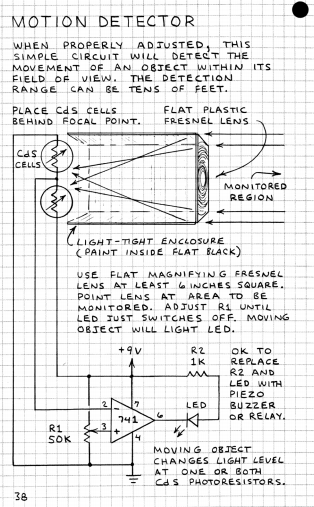 MOTION DETECTOR
WHEN PROPERLY ADJUSTED, THIS
SIMPLE CIRCUIT WILL DETECT THE
MOVEMENT OF AN OBJECT WITHIN ITS
FIELD OF VIEW. THE DETECTION
RANGE CAN BE TENS OF FEET.
PLACE CdS CELLS
BEHIND FOCAL POINT.
FLAT PLASTIC
FRESNEL LENS
CdS
CELLS
MONITORED
REGION
LIGHT-TIGHT ENCLOSURE
(PAINT INSIDE FLAT BLACK)
USE FLAT MAGNIFYING FRESNEL
LENS AT LEAST 6 INCHES SQUARE.
POINT LENS AT AREA TO BE
MONITORED. ADJUST R1 UNTIL
LED JUST SWITCHES OFF. MOVING
OBJECT WILL LIGHT LED.
+9V
R2
1K
OK TO
REPLACE
R2 AND
LED WITH
PIEZO
BUZZER
OR RELAY.
2
-
7
741
6
LED
R1
50K
3
+
4
MOVING OBJECT
CHANGES LIGHT LEVEL
AT ONE OR BOTH
CdS PHOTORESISTORS.
38